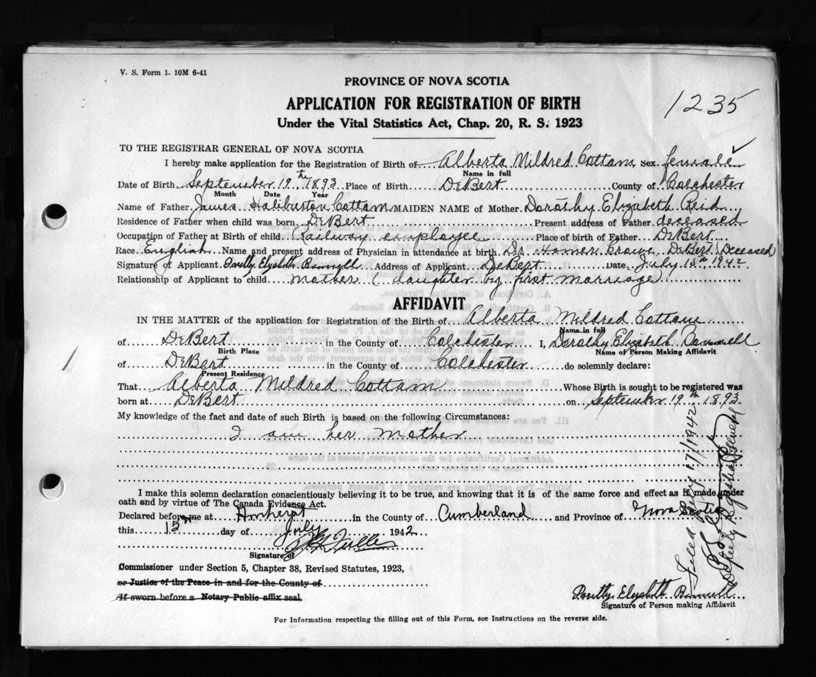 V. S. Form 1. 10M 6-41
PROVINCE OF NOVA SCOTIA
1235
APPLICATION FOR REGISTRATION OF BIRTH
Under the Vital Statistics Act, Chap. 20, R. S. 1923
TO THE REGISTRAR GENERAL OF NOVA SCOTIA
I hereby make application for the Registration of Birth of Alberta Mildred Cottam sex female
Name in full
Date of Birth September 19th 1893 Place of Birth DeBert County of Colchester
Month Date Year
Name of Father James Haliburton Cottam MAIDEN NAME of Mother Dorothy Elizabeth Reid
Residence of Father when child was born DeBert Present address of Father deceased
Occupation of Father at Birth of child Railway employee Place of birth of Father DeBert
Race English Name and present address of Physician in attendance at birth Dr. Homer DeBert Deceased
Signature of Applicant Address of Applicant DeBert Date July 15th 1942
Relationship of Applicant to child Mother (daughter by first marriage)
AFFIDAVIT
IN THE MATTER of the application for Registration of the Birth of Alberta Mildred Cottam
Name in full
of DeBert in the County of Colchester I, Dorothy Elizabeth
Birth Place Name of Person Making Affidavit
of DeBert in the County of Colchester do solemnly declare:
Present Residence
That Alberta Mildred Cottam Whose Birth is sought to be registered was
born at DeBert on September 19th 1893
My knowledge of the fact and date of such Birth is based on the following Circumstances:
I am her mother
I make this solemn declaration conscientiously believing it to be true, and knowing that it is of the same force and effect as if made under
oath and by virtue of The Canada Evidence Act.
Declared before me at Amherst in the County of Cumberland and Province of Nova Scotia
this 15th day of July 1942
Signature of
Commissioner under Section 5, Chapter 38, Revised Statutes, 1923,
or Justice of the Peace in and for the County of
If sworn before a Notary Public affix seal.
Signature of Person making Affidavit
For Information respecting the filling out of this Form, see Instructions on the reverse side.